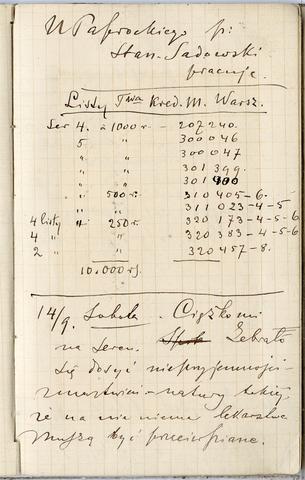 U Paprockiego p:
Stan. Sadowski
pracuje.
Listy Twa Kred. M. Warsz.
Ser 4. à 1000 r. - 207 240.
5 " 300 046
" 300 047
" 301 399.
" 301 400
" 500 r. 310 405-6.
" 311 023-4-5
4 listy " à. 250 r. 320 173-4-5-6
4 " " 320 383-4-5-6
2 " 320 457-8.
10.000 rs.
14/9. Sobota. Ciężko mi
na sercu. Zebrało
się dosyć nieprzyjemności
zmartwień - natury takiej,
że na nie niema lekarstwa
muszą być przecierpiane.